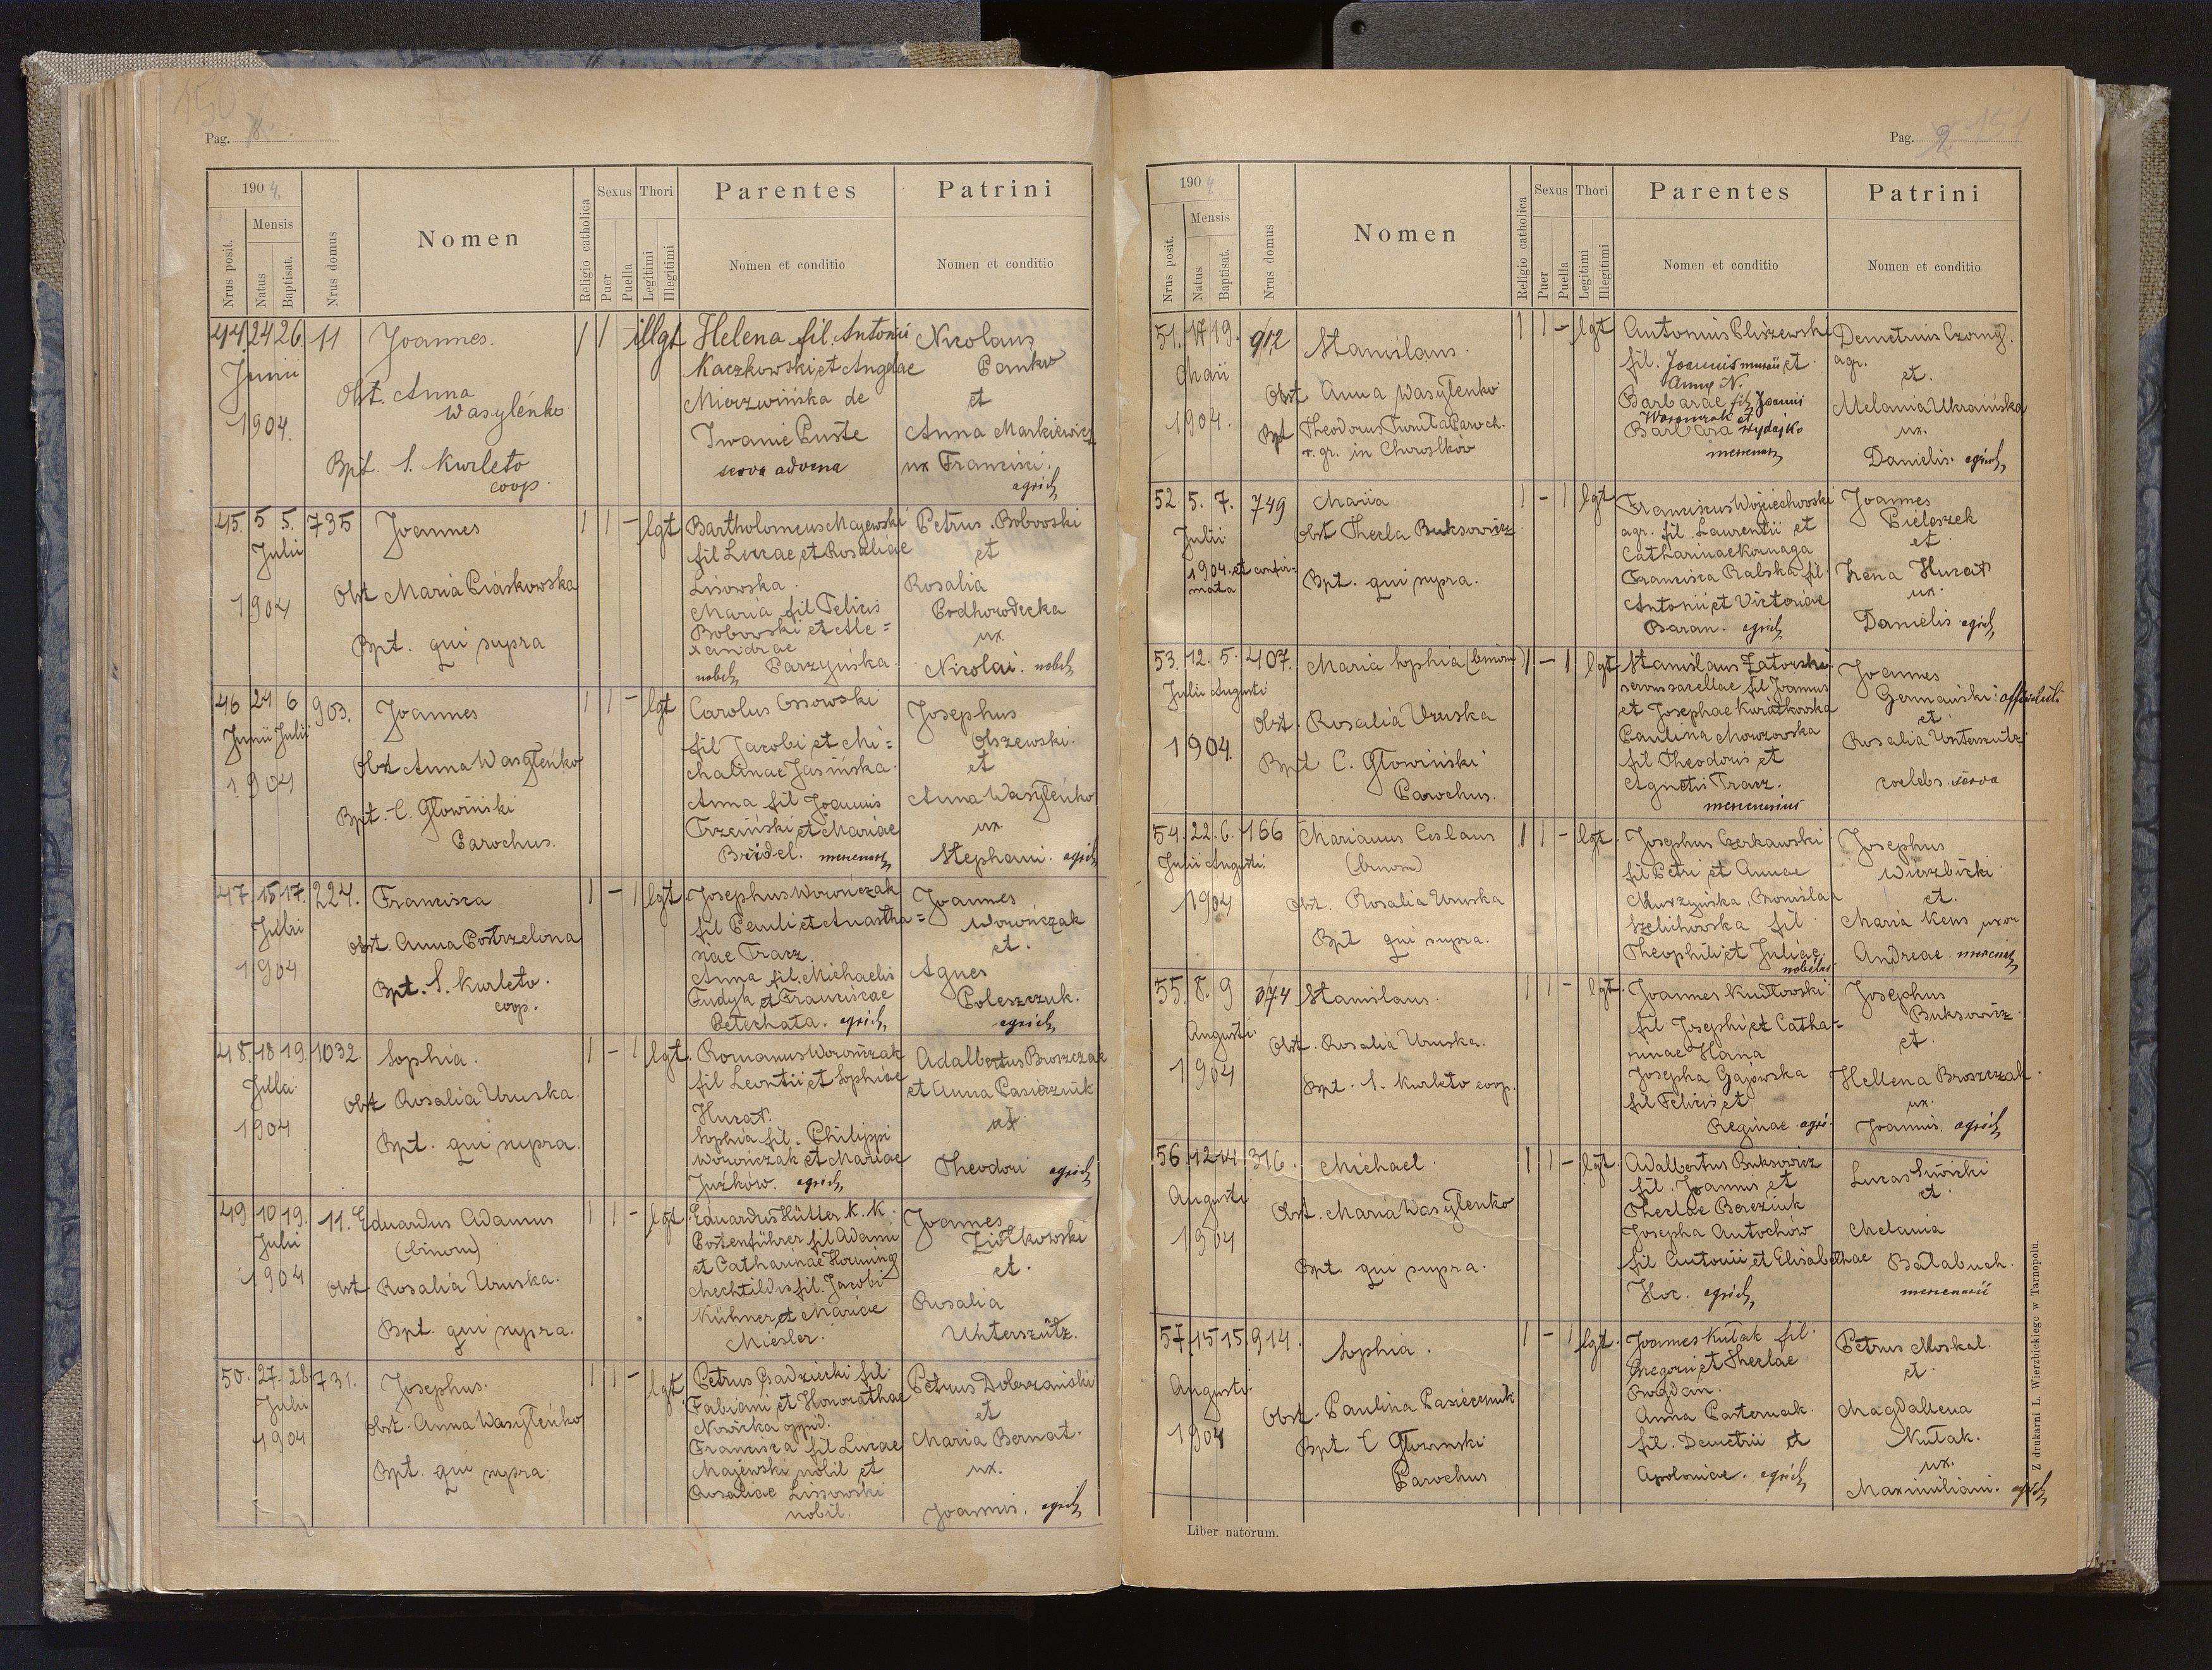 150
Pag. 8.
1904.
Nrus posit.
Mensis
Natus
Baptisat.
Nrus domus
Nomen
Religio catholica
Sexus
Puer
Puella
Thori
Legitimi
Illegitimi
Parentes
Nomen et conditio
Patrini
Nomen et conditio
44. 24 26. 11 Joannes. 1 1 - illgt
Junii
1904.
Obst. Anna
Wasyleńko
Bpt. S. Kurleto
coop.
Helena fil. Antonii
Kaczkowski et Angelae
Mierzwińska de
Iwanie Puste
serva advena
Nicolaus
Pańko
et
Anna Markiewicz
ux Francisci.
agricol
45. 5 5. 735 Joannes 1 1 - lgt
Julii
1904
Obst Maria Piaskowska
Bpt. qui supra
Bartholomeus Majewski
fil Lucae et Rosaliae
Lisowska.
Maria fil Felicis
Bobowski et Ale=
xandrae
nobil Parzyńska.
Petrus. Bobowski
et
Rosalia
Podhorodecka
ux.
Nicolai. nobil
46 24 6 903. Joannes 1 1 - lgt
Junii Julii
1904
Obst Anna Wasyleńko
Bpt. C. Głowiński
Parochus.
Carolus Ossowski
fil Jacobi et Mi=
chalinae Jasińska.
Anna fil Joannis
Trzciński et Mariae
Bridel. mercenar
Josephus
Olszewski.
et
Anna Wasyleńko
ux.
Stephani. agricol
47. 15 17. 224. Francisca 1 - 1 lgt.
Julii
1904
Obst. Anna Postrzelona
Bpt. S. Kurleto.
coop.
Josephus Worończak
fil Pauli et Anastha=
siae Tracz.
Anna fil. Michaelis
Fudyk et Franciscae
Peterhata. agricol
Joannes
Worończak
et.
Agnes
Poleszczuk.
agricol
48. 18 19. 1032. Sophia. 1 - 1 lgt.
Julii
1904
Obst Rosalia Uruska.
Bpt. qui supra.
Romanus Worończak
fil Leontii et Sophiae
Hucał.
Sophia fil. Philippi
Worończak et Mariae
Juźków. agricol
Adalbertus Broszczak
et Anna Pasiecznik
ux
Theodori agricol
49 10 19. 11. Eduardus Adamus 1 1 - lgt.
Julii
1904
(binom)
Obst. Rosalia Uruska.
Bpt. qui supra.
Eduardus Hütter K. K.
Postenführer fil Adami
et Catharinae Horning
Mechtildis fil. Jacobi
Kühner et Mariae
Miesler.
Joannes
Ziółkowski
et.
Rosalia
Unterszütz.
50. 27. 28 731. Josephus. 1 1 - lgt
Julii
1904
Obst. Anna Wasyleńko
Bpt. qui supra.
Petrus Gadziecki fil.
Fabiani et Honorathae
Nowicka oppid.
Francisca fil Lucae
Majewski nobil et
Rosaliae Lissowski
nobil.
Petrus Dobrzański
et
Maria Bernat.
ux.
Joannis. agricol
Pag. 9 151
1904
Nrus posit.
Mensis
Natus
Baptisat.
Nrus domus
Nomen
Religio catholica
Sexus
Puer
Puella
Thori
Legitimi
Illegitimi
Parentes
Nomen et conditio
Patrini
Nomen et conditio
51. 17 19. 912 Stanislaus. 1 1 - lgt
Maii
1904.
Obst Anna Wasyleńko
Bpt Theodorus Paroch.
r. gr. in Chorostków
Antonius Pliszewski
fil. Joannis et
Annae N.
Barbarae fil Joannis
Worończak et
Barbara
mercenar
Demetrius Czorny.
agr.
et.
Melania Ukraińska
ux.
Danielis. agricol
52. 5. 7. 749 Maria 1 - 1 lgt
Julii
1904. et confir=
mata
Obst Thecla Buksowicz
Bpt. qui supra.
Franciscus Wojciechowski
agr. fil. Laurentii et
Catharinae Kornaga
Francisca Rabska fil
Antonii et Victoriae
Baran. agricol
Joannes
Bieleszek
et.
Irena Hucał
ux.
Danielis agricol
53. 12. 5. 407. Maria Sophia (binom) 1 - 1 lgt.
Julii Augusti
1904.
Obst. Rosalia Uruska
Bpt C. Głowiński
Parochus.
Stanislaus Zatorski
servus sacellae fil Joannis
et Josephae Kwiatkowska
Paulina Morozowska
fil Theodoris et
Agnetis Tracz.
mercenarius
Joannes
Germański
et
Rosalia Unterszütz
coelebs serva
54. 22. 6. 166 Marianus Ceslaus 1 1 - lgt.
Julii Augusti.
1904
(binom)
Obst. Rosalia Uruska
Bpt qui supra.
Josephus Czerkawski
fil Petri et Annae
Murzyńska, Bronislaa
Szelichowska fil
Theophili et Juliae.
nobiles
Josephus
Wierzbicki
et.
Maria Kens uxor
Andreae.
55. 8. 9 374 Stanislaus. 1 1 - lgt.
Augusti.
1904
Obst. Rosalia Uruska.
Bpt. S. Kurleto coop.
Joannes Kudłowski
fil. Josephi et Catha-
rinae Hana
Josepha Gajewska
fil Felicis et
Reginae. agri.
Josephus
Buksowicz
et.
Hellena Broszczak.
ux.
Joannis. agricol
56. 12 14 316. Michael. 1 1 - lgt.
Augusti
1904
Obst. Maria Wasyleńko
Bpt. qui supra.
Adalbertus Buksowicz
fil. Joannis et
Theclae Bereziuk
Josepha Antochów
fil Antonii et Elisabethae
Hoc. agricol
Lucas Siwicki
et.
Melania
Bałabuch.
mercenarii
57. 15 15. 914. Sophia. 1 - 1 lgt.
Augusti.
1904
Obst. Paulina Pasiecznik
Bpt. C Głowinski
Parochus
Joannes Kutak fil.
Gregorii et Theclae
Bogdan.
Anna Pasternak.
fil. Demetrii et
Apoloniae. agricol
Petrus Moskal.
et.
Magdalena
Kutak.
ux.
Maximiliani. agricol
Liber natorum.
Z drukarni L. Wierzbickiego w Tarnopolu.